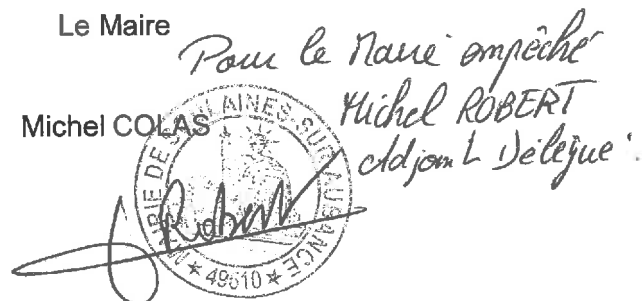 Le Maire
Pour le Maire empêché
Michel COLAS
Michel ROBERT
Adjoint Délégué
MAIRIE DE SOULAINES-SUR-AUBANCE
Robert
* 49610 *